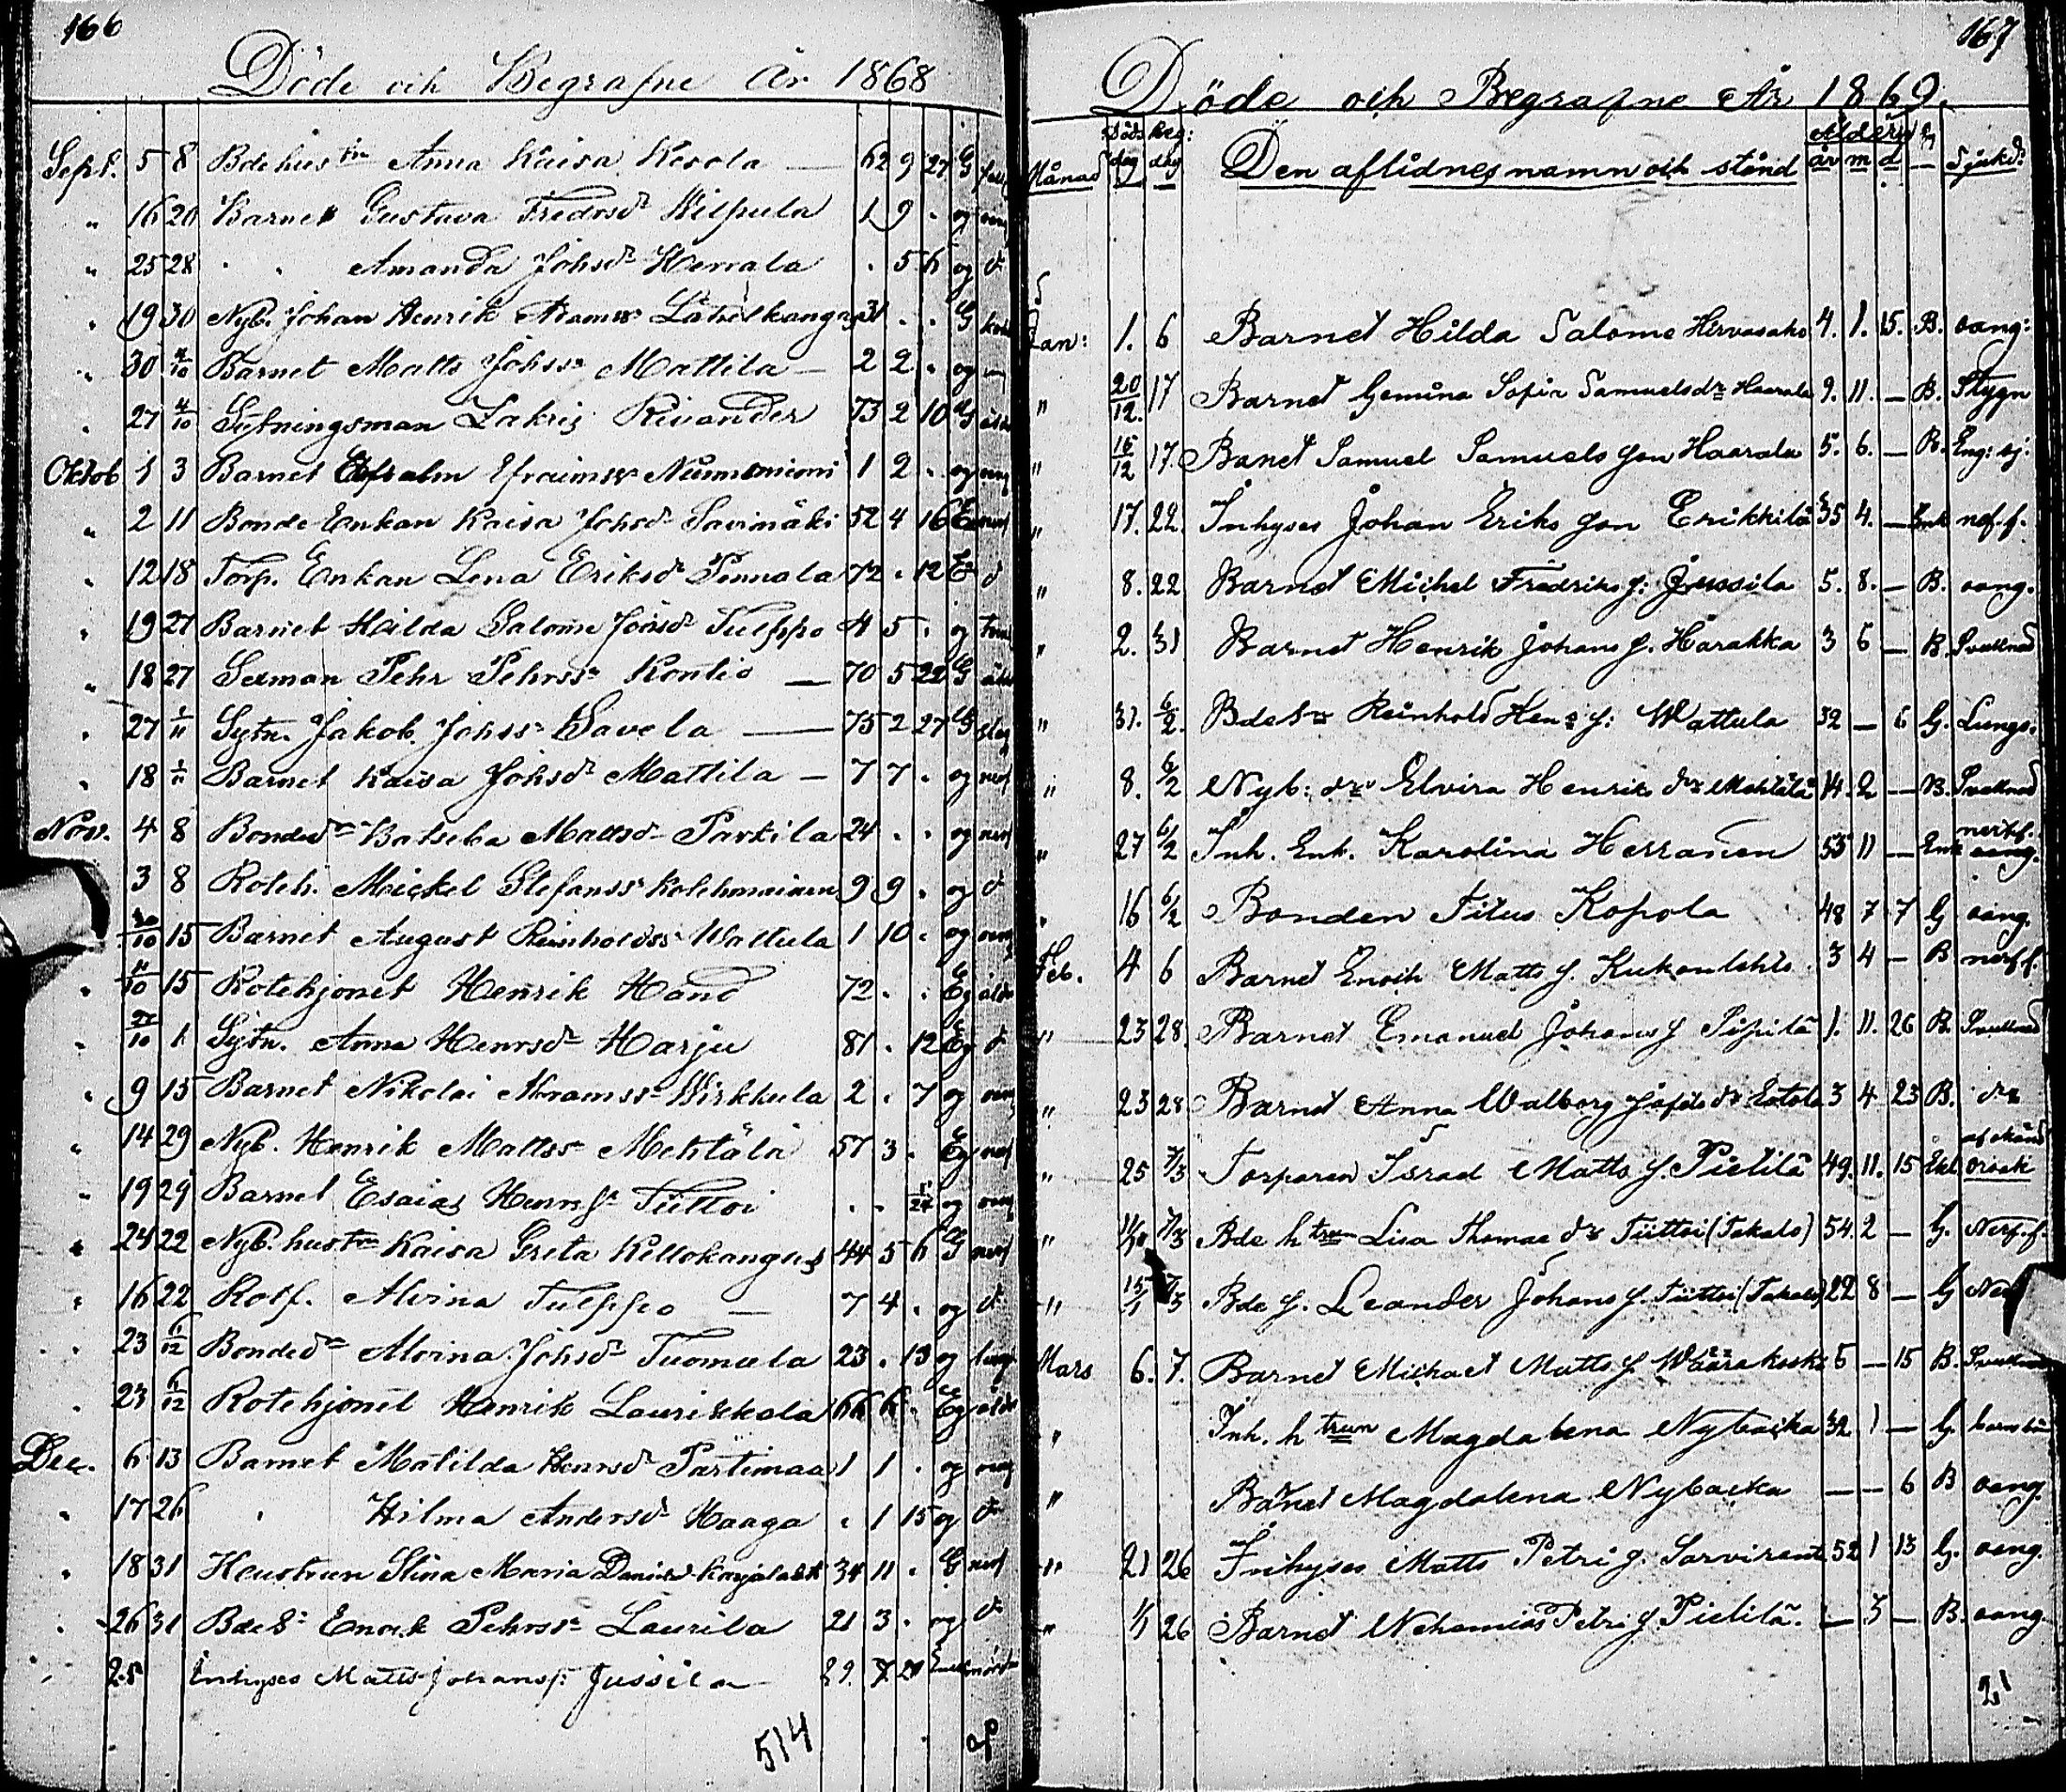 166
Döde och Begrafne År 1868
Sept. 5 8 Bdehust:n Anna Kaisa Kesola — 62 9 27 G
" 16 20 Barnet Gustava Fredrsdr Wilpula 1 9 . og
" 25 28 " " Amanda Johsdr Herrala . 5 6 og d:o
" 19 30 Nyb. Johan Henrik 31 . . G
" 30 4/10 Barnet Matts Johss: Mattila — 2 2 . og
" 27 4/10 Sytningsman Zakris 73 2 10 G
Oktob 1 3 Barnet Efraim Efraimss: 1 2 . og
" 2 11 Bonde Enkan Kaisa Johsd: Savimäki 52 4 16 E nerf
" 12 18 Torp. Enkan Lena Eriksd: Pennala 72 . 12 E d:o
" 19 27 Barnet Hilda Salome Tulppo 4 5 . og
" 18 27 Sexman Pehr Pehrss: Kontio — 70 5 22 G
" 27 1/11 Sytn. Jakob Johss: Savela — 75 2 27 G
" 18 1/11 Barnet Kaisa Johsd: Mattila — 7 7 . og nerf
Nov. 4 8 Bonded: Batseba Mattsd: Parkila 24 . . og nerf
3 8 Roteh. Mickel Stefanss: Kolehmainen 9 9 . og d:o
15 Barnet August Reinholdss: Wattula 1 10 . og
" 15 Rotehjonet Henrik Hand 72 . . Eg
" 1 Sytn. Anna Henrsd: Harju 81 . 12 Eg d:o
" 9 15 Barnet Nikolai Abramss: Wirkkula 2 . 7 og
" 14 29 Nyb. Henrik Mattss: Mehtälä 57 3 . Eg nerf
" 19 29 Barnet Esaias Henrss: Tiittoi . . 1/24 og
" 24 22 Nyb. hust:n Kaisa Greta Kellokangas 44 5 6 G nerf
" 16 22 Rotf. Alvina Tulppo — 7 4 . og d:o
" 23 6/12 Bonded: Alvina Johsd: Tuomela 23 . 13 og lung
" 23 6/12 Rotehjonet Henrik Laurikkala 66 6 . Eg
Dec. 6 13 Barnet Matilda Henrsd: Partimaa 1 1 . og
" 17 26 " Hilma Andersd: Haaga . 1 15 og d:o
" 18 31 Hustrun Stina Maria 34 11 . G nerf
" 26 31 Bdes: Enok Pehrss: Laurila 21 3 . og d:o
" 25 Inhyses Matts Johans f: Jussila 29. 7 20
514
167
Döde och Begrafne År 1869.
Månad Döds dag Beg: dag Den aflidnes namn och stånd Ålder år m d Sjukd:
Jan: 1. 6 Barnet Hilda Salome Hirvasaho 4. 1. 15. B. oang:
" 20/12. 17 Barnet Gemina Sofia Samuelsdr Haarala 9. 11. — B. Stygn
" 15/12 17. Banet Samuel Samuels son Haarala 5. 6. — B. Eng: sj:
" 17. 22. Inhyses Johan Eriks son Erikkilä 35 4. — Enk nerf.f.
" 8. 22 Barnet Michel Fredriks f: Jussila 5. 8. — B. oang.
" 2. 31 Barnet Henrik Johans f. Harakka 3 6 — B. Svullnad
" 31. 6/2. Bdes: Reinhold Hen:s f: Wattula 32 — 6 G. Lungs.
" 8. 6/2 Nyb: dr Elvira Henriks dr Mehtälä 14. 2 — B. Svullnad
" 27 6/2 Inh. Enk. Karolina Herranen 55 11 — Enk nerff. oang.
" 16 6/2 Bonden Titus Kopola 48 7 7 G oang.
Feb. 4 6 Barnet Enoch Matts f. 3 4 — B nerf f.
" 23 28. Barnet Emanuel Johans f Sipilä 1. 11. 26 B. Svullnad
" 23 28 Barnet Anna Walborg Josefs dr 3 4 23 B. d:o
" 25 7/3 Torparen Israel Matts f. Pietilä 49. 11. 15 Enk af okänd orsak
" 7/3 Bde h trun Lisa Thomae dr Tiittoi (Takalo) 54. 2 — G. Nerf.f.
" 15/1 7/3 Bde f. Leander Johans f. Tiittoi (Takalo) 22 8 — G
Mars 6. 7. Barnet Michael Matts f. Wäärakoski 5 — 15 B. Svullnad
" Inh. h trun Magdalena Nybacka 32 1 — G.
" Barnet Magdalena Nybacka — — 6 B oang.
" 21 26 Inhyses Matts Petri f: Sarviranta 52 1 13 G. oang.
" 1/1 26 Barnet Nehemias Petri f. Pietilä. — 3 — B. oang.
21